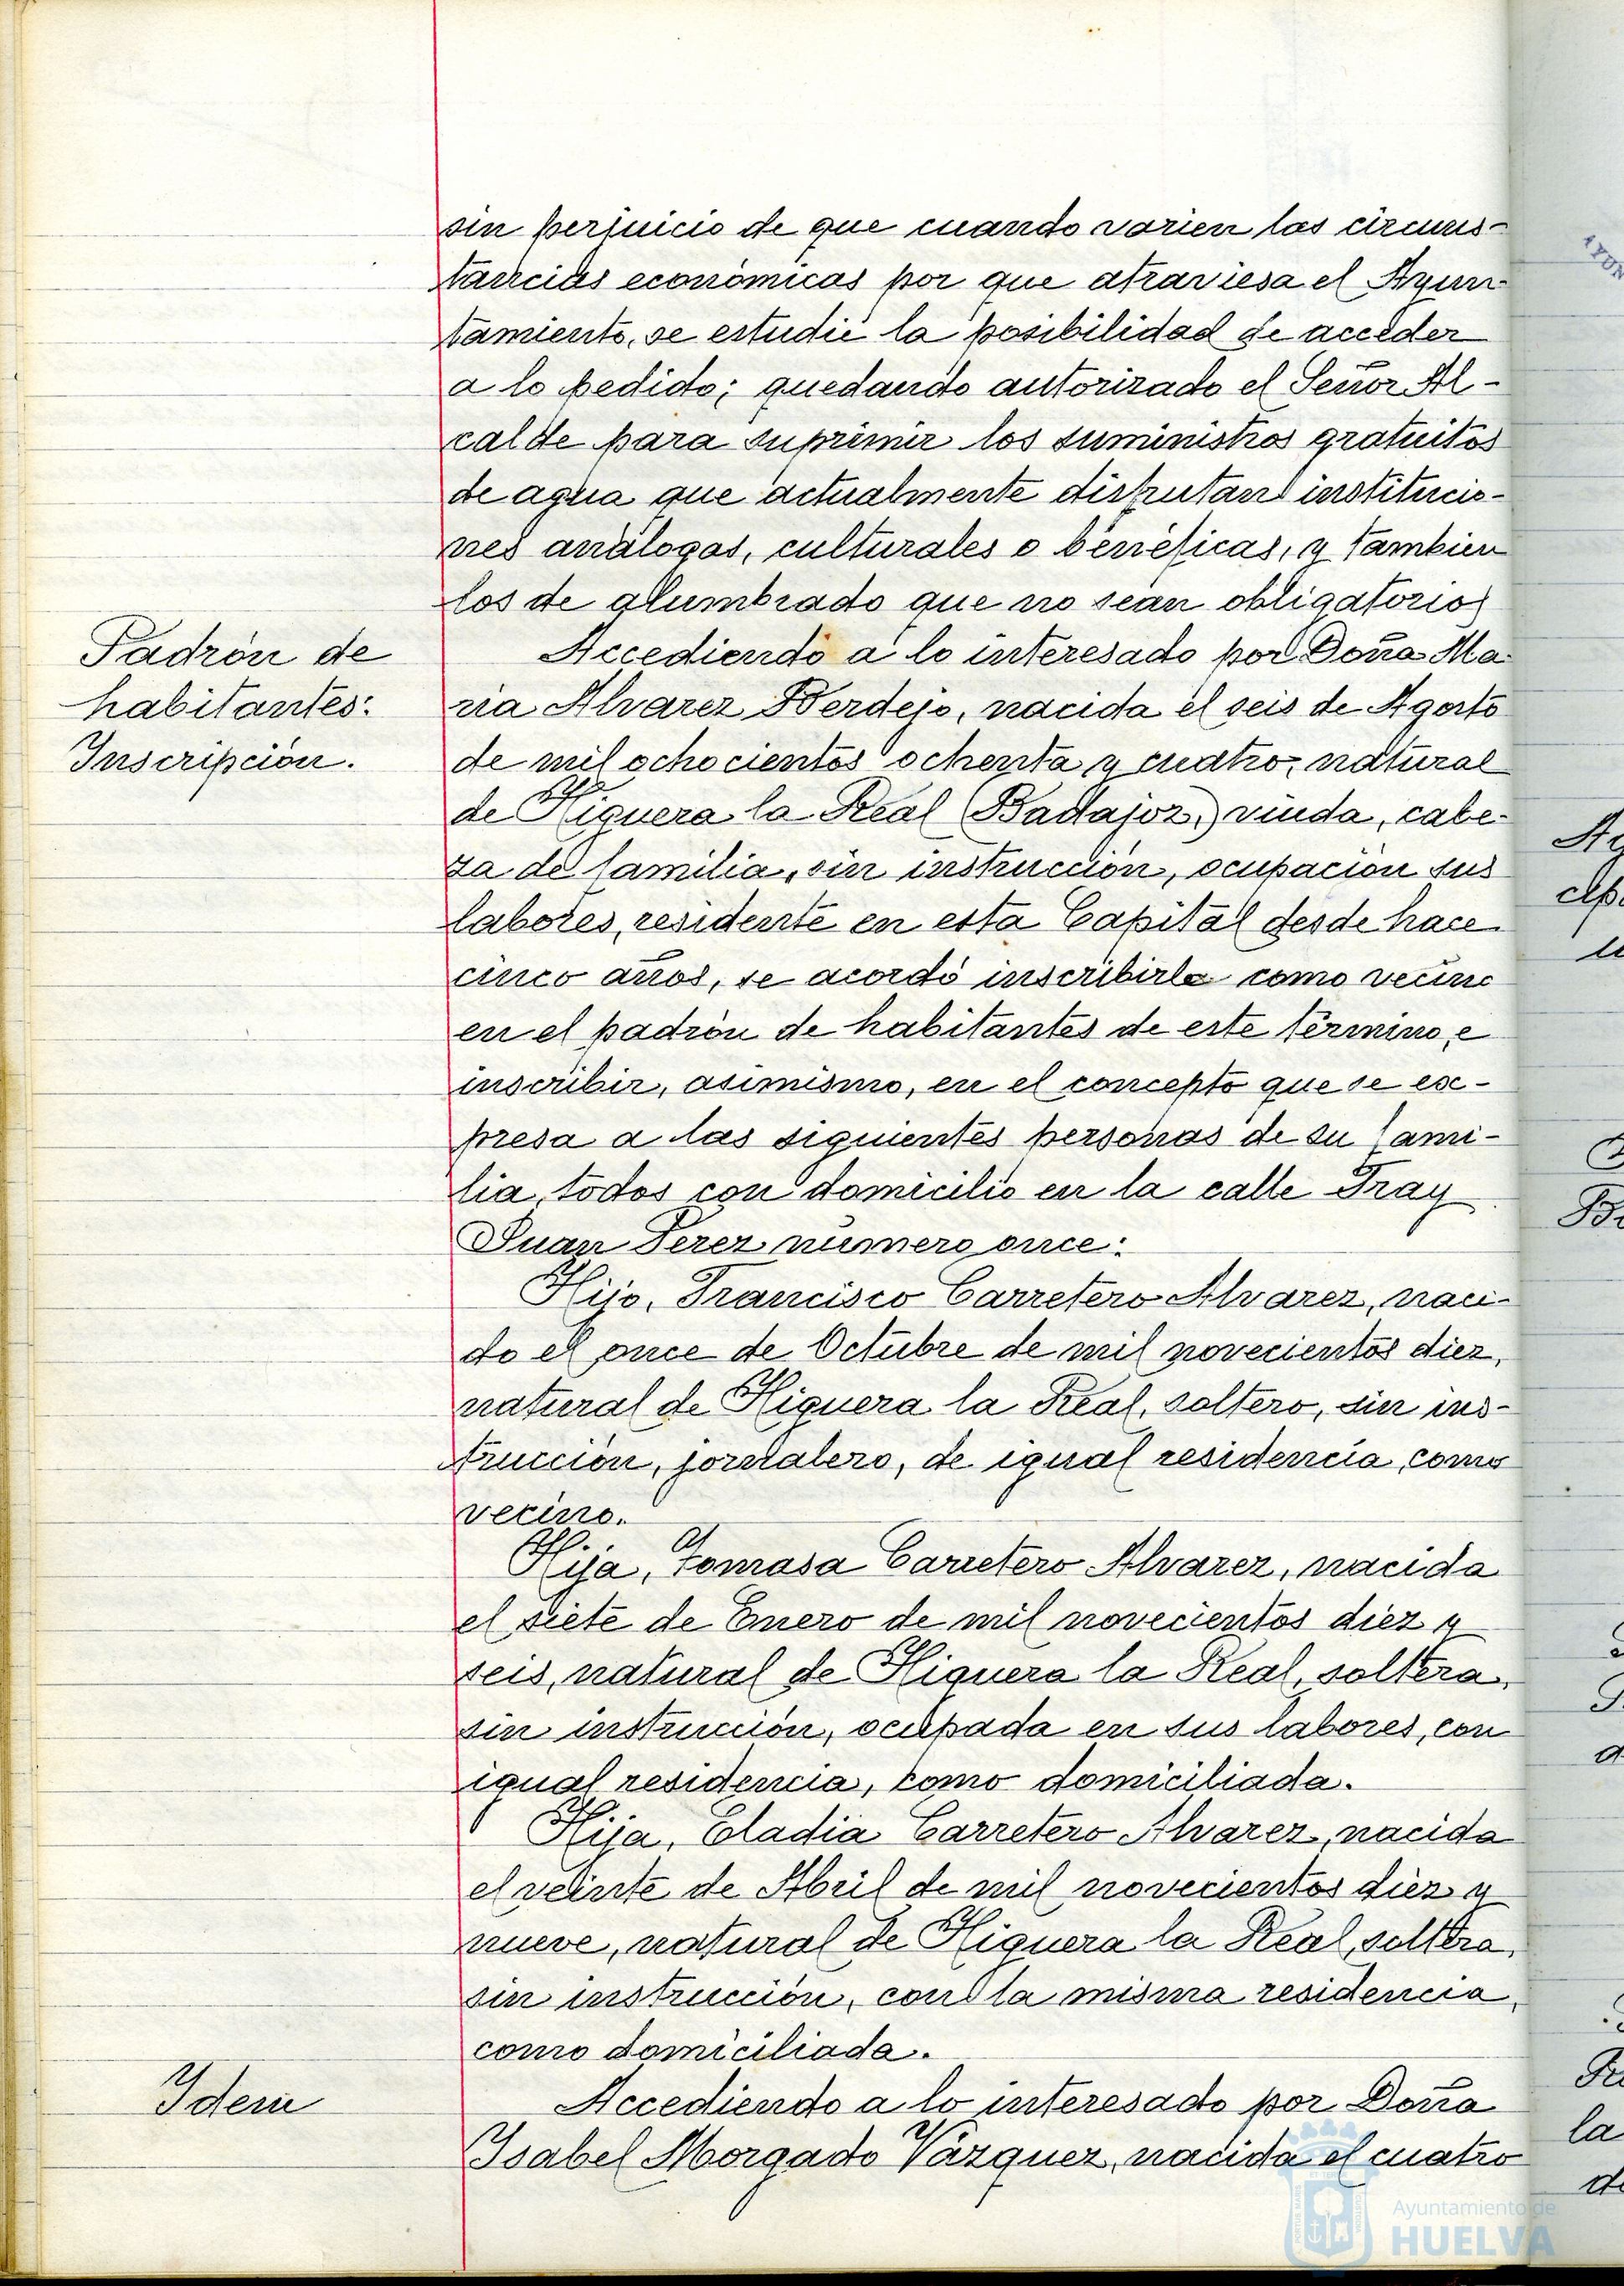 sin perjuicio de que cuando varien las circuns-
tancias económicas por que atraviesa el Ayun-
tamiento, se estudie la posibilidad de acceder
a lo pedido; quedando autorizado el Señor Al-
calde para suprimir los suministros gratuitos
de agua que actualmente disfrutan institucio-
nes análogas, culturales o benéficas, y tambien
los de alumbrado que no sean obligatorios
Padrón de
habitantes:
Inscripción.
Accediendo a lo interesado por Doña Ma-
ria Alvarez Berdejo, nacida el seis de Agosto
de mil ochocientos ochenta y cuatro, natural
de Higuera la Real (Badajoz,) viuda, cabe-
za de familia, sin instrucción, ocupación sus
labores, residente en esta Capital desde hace
cinco años, se acordó inscribirla como vecino
en el padrón de habitantes de este término, e
inscribir, asimismo, en el concepto que se ex-
presa a las siguientes personas de su fami-
lia, todos con domicilio en la calle Fray
Juan Perez número once:
Hijo, Francisco Carretero Alvarez, naci-
do el once de Octubre de mil novecientos diez,
natural de Higuera la Real, soltero, sin ins-
trucción, jornalero, de igual residencia, como
vecino.
Hija, Tomasa Carretero Alvarez, nacida
el siete de Enero de mil novecientos diez y
seis, natural de Higuera la Real, soltera,
sin instrucción, ocupada en sus labores, con
igual residencia, como domiciliada.
Hija, Eladia Carretero Alvarez, nacida
el veinte de Abril de mil novecientos diez y
nueve, natural de Higuera la Real, soltera,
sin instrucción, con la misma residencia,
como domiciliada.
Idem
Accediendo a lo interesado por Doña
Isabel Morgado Vázquez, nacida el cuatro
Ayuntamiento de
HUELVA